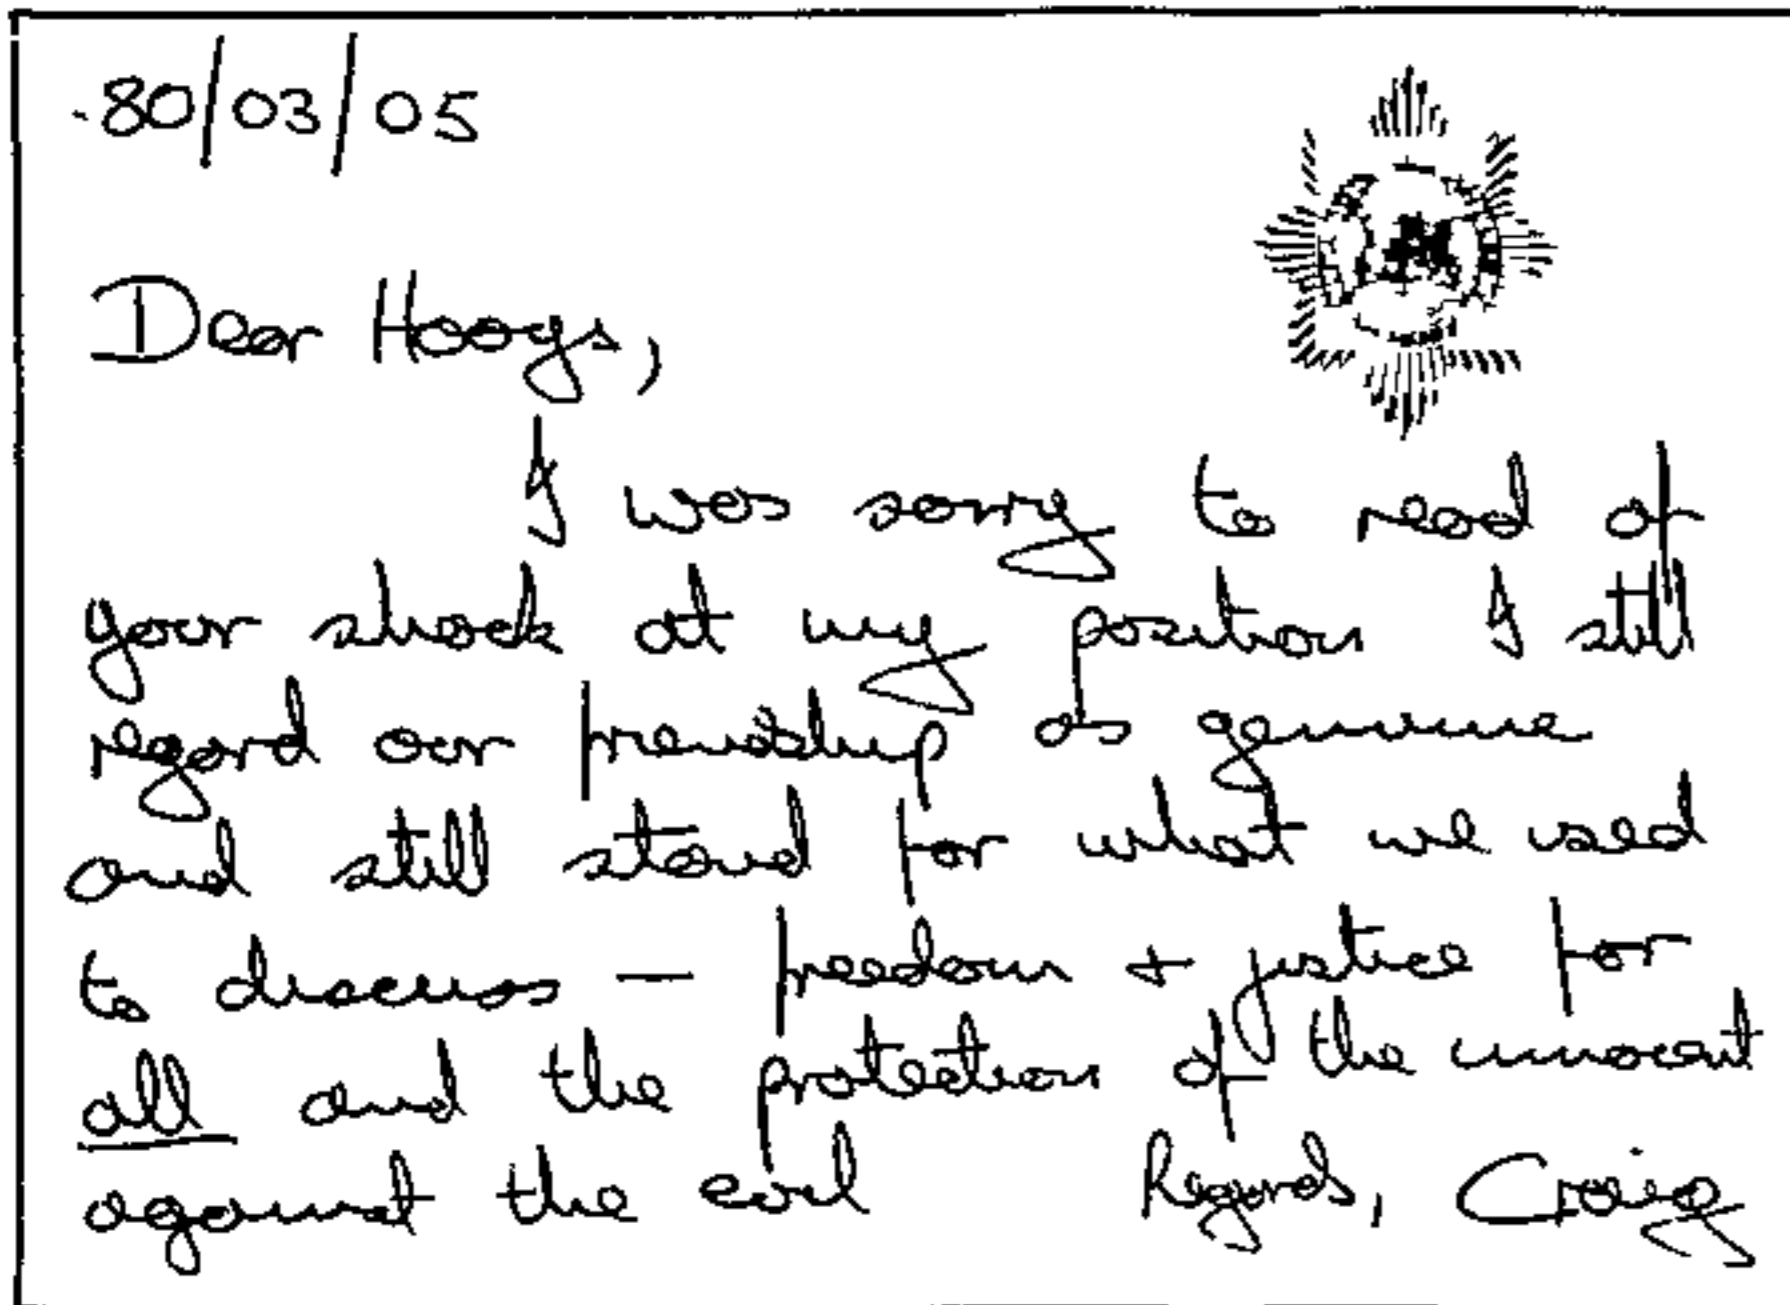 80/03/05
Dear Hoogs,
I was sorry to read of
your shock at my position I still
regard our friendship as genuine
and still stand for what we used
to discuss — freedom + justice for
all and the protection of the innocent
against the evil Regards, Craig